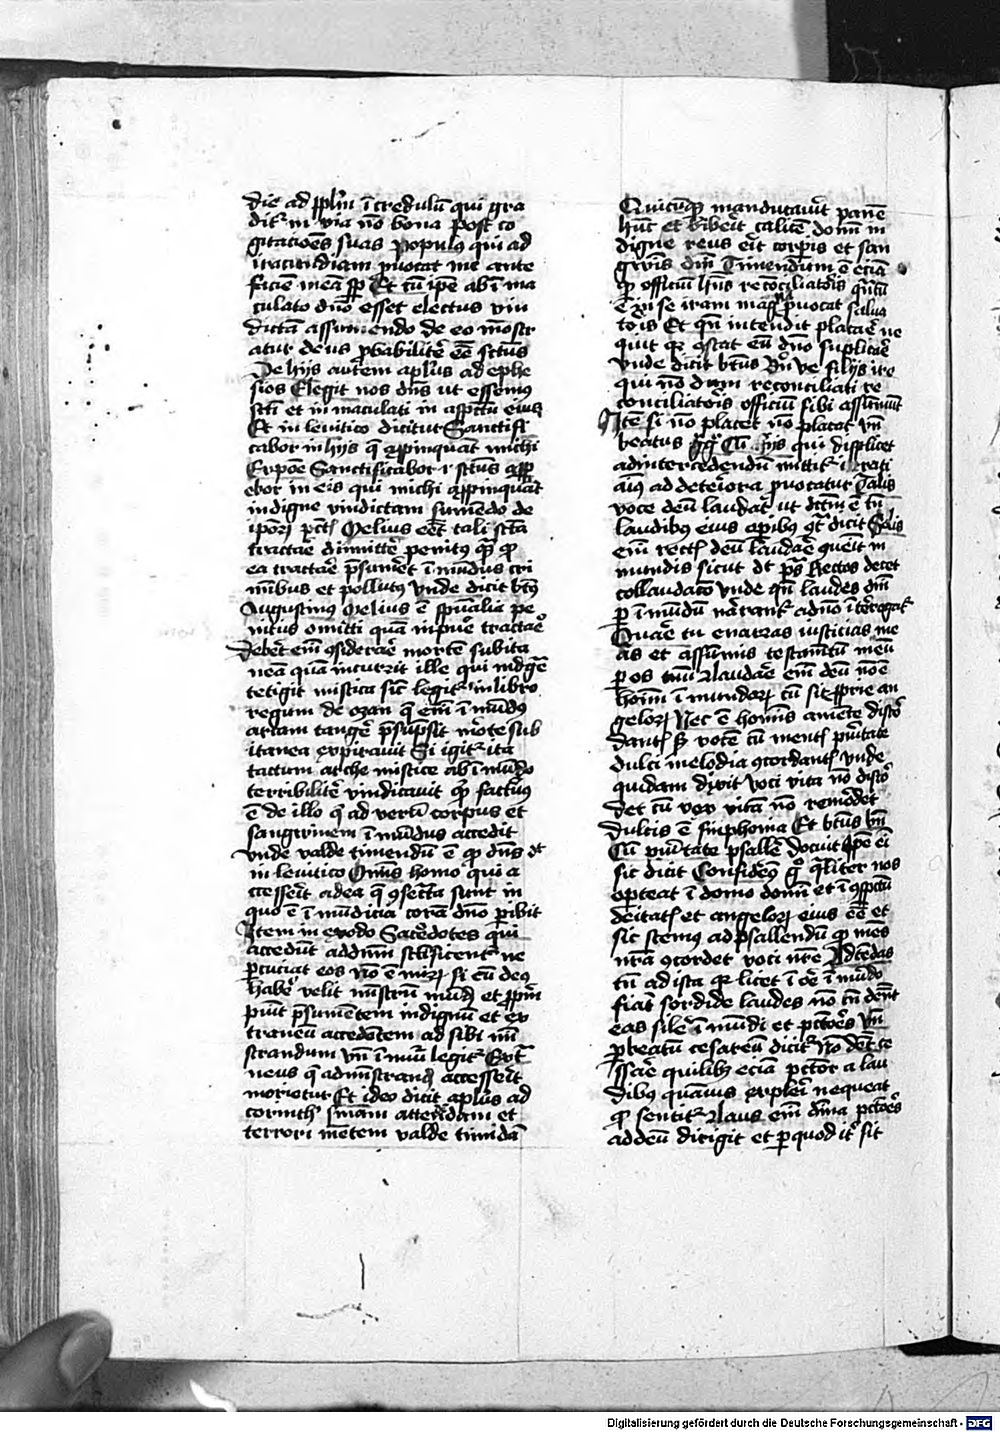 die ad pplm īcredulū qui gra
dit' in via nō bona post co
gitacōes suas Populus qui ad
iracundiam puocat me ante
faciē meā sp Et cū ipe ab īma
culato dno esset electus vin
dictā assumendo de eo mōstr
atur deus pbabilitē eē sctūs
De hijs autem aplus ad ephe
sios Elegit nos dns ut essemus
scti et in maculati in aspctu eius
Et in levitico dicitur Sanctifi
cabor in hijs q appinquāt michi
Expōe Sanctificabor i sctūs app
ebor in eis qui michi appinquāt
indigne vindictam sumēdo de
ipor pctis Melius eēt tali sctā
tractāe dimittē penitus qm q
ea tractāe psumēt īmundus cri
mībus et pollutus vnde dicit btūs
Augustinus Melius ē spūalia pe
nitus omitti quā inpuē tractāe
Debet em osiderāe mortē subita
neā quā incurrit ille qui indgē
tetigit mistica sic legit' in libro
regum de ozan q em ī mūdus
arcam tangē psūpsit mōte sub
itanea expirauit Si igit' ita
tactum arche mistice ab ī mūdo
terribilitē vindicauit qd factus
ē de illo q ad verū corpus et
sanguinem ī mūdus accedit
vnde valde timendū ē qd dns dt
in leuitico Omis homo qui a
ccessēit ad ea q osecrta sunt in
quo ē ī mūdicia corā dno pibit
Item in exodo Sacēdotes qui
accedūt ad dnm sctificent' ne
pcuciat eos Nō ē mir si cū deus
habē velit mistrū mūd et ppm
piūt psumētem indignū et ex
traneū accedētem ad sibi mī
strandum vn ī mui legit' Ext
neus q ad mistrand accessēit
moriotur Et ideo dicit aplus ad
corinth smam attendendam et
terrori mētem valde timidā
Quicuq manducauīt panē
hūc et bibēit calicē domi in
digne reus eīt corpis et san
gwis dni Timendum ē eciā
qd officiū hns reconciliatois qntū
ē in se iram mag puocat salua
tois Et qn intendit placāe ne
quit qr ostat eū dno suplicāe
vnde dicit btūs Bn ve filijs ire
qui nō dum reconciliati re
conciliatōis officiū sibi assumūt
Itē si nō placet nō placat vn
beatus Cū is qui displicet
ad intercedendū mittit' irati
aius ad deteriora puocatur Talis
voce deū laudat ut dctm ē tn
laudibus eius opibus ot dicit Solis
em rectis deū laudāe quēit in
mundis sicut dt ps Rectos decet
collaudaco vnde qn laudes dni
p ī mūdū nārant' a dno īterogat'
Quāe tu enarras iusticias me
as et assūmis testamtū meū
p os tuū Naudāe em deū nōē
homi ī mundor cū sit pprie an
gelor Nec ē homīs amēte discor
dantis s vocē cū mentis puītate
dulci melodia ocordantis vnde
quidam dixit Voci vita nō discor
det cū vox vitā nō remōdet
dulcis ē simphonia Et btūs bn
Cū puītate psallē docuit ope ei
sic dicit Considēmus g qliter nos
opteat ī domo domi et ī ospctu
deitatis et angelor eius eē et
sic stemus ad psallendū qd mēs
nrā ocordet voci nre Adtēdas
tn ad ista qr licet ī ōe ī mūdo
fiāt sordide laudes nō tn dent
eas silē ī mūdi et pctōres vn
p beatū cesareū dicit' Nō dēt ce
ssāe quilibꝫ eciā pctor a lau
dibus quāuis explēi nequeat
qd sentit' Naus em dīna pctōes
ad deū dirigit et p quod it' sit
Digitalisierung gefördert durch die Deutsche Forschungsgemeinschaft - DFG